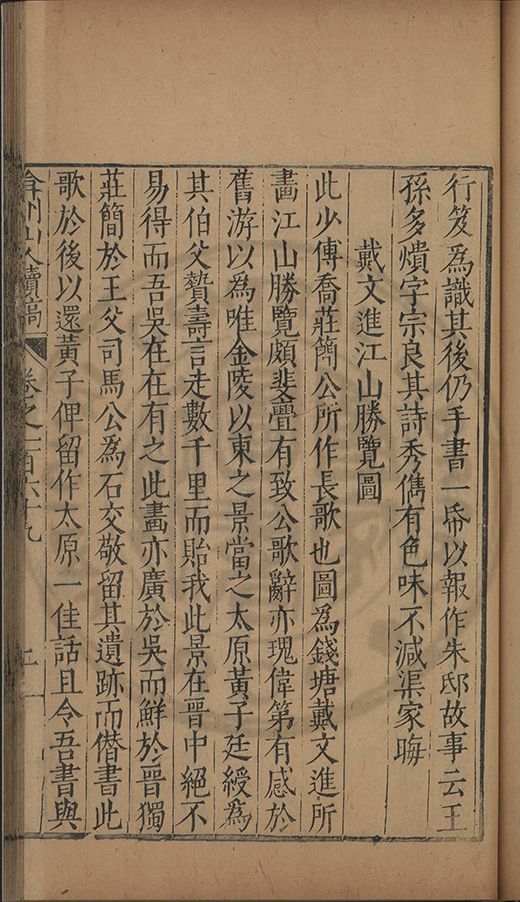 行笈為識其後仍手書一帋以報作朱邸故事云王
孫多熿字宗良其詩秀儁有色味不減渠家晦
戴文進江山勝覽圖
此少傳喬莊簡公所作長歌也圖為錢塘戴文進所
畵江山勝覽頗斐亹有致公歌辭亦瑰偉第有感於
舊游以為唯金陵以東之景當之太原黃子廷綬為
其伯父贄壽言走數千里而貽我此景在晉中絕不
易得而吾吳在在有之此畫亦廣於吳而鮮於晉獨
莊簡於王父司馬公為石交敬留其遺跡而僭書此
歌於後以還黃子俾留作太原一佳話且令吾書與
弇州山人續稿 卷之一百六十九